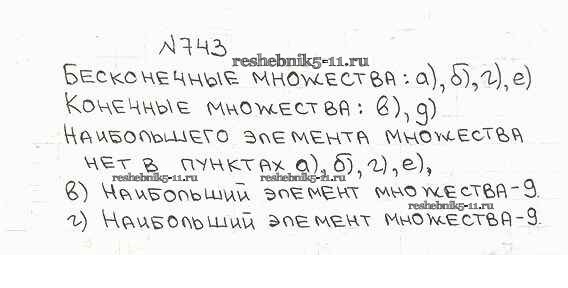 №743
reshebnik5-11.ru
Бесконечные множества: а), б), г), е)
Конечные множества: в), д)
reshebnik5-11.ru
Наибольшего элемента множества
нет в пунктах а), б), г), е),
reshebnik5-11.ru reshebnik5-11.ru
в) Наибольший элемент множества-9.
reshebnik5-11.ru
г) Наибольший элемент множества-9.